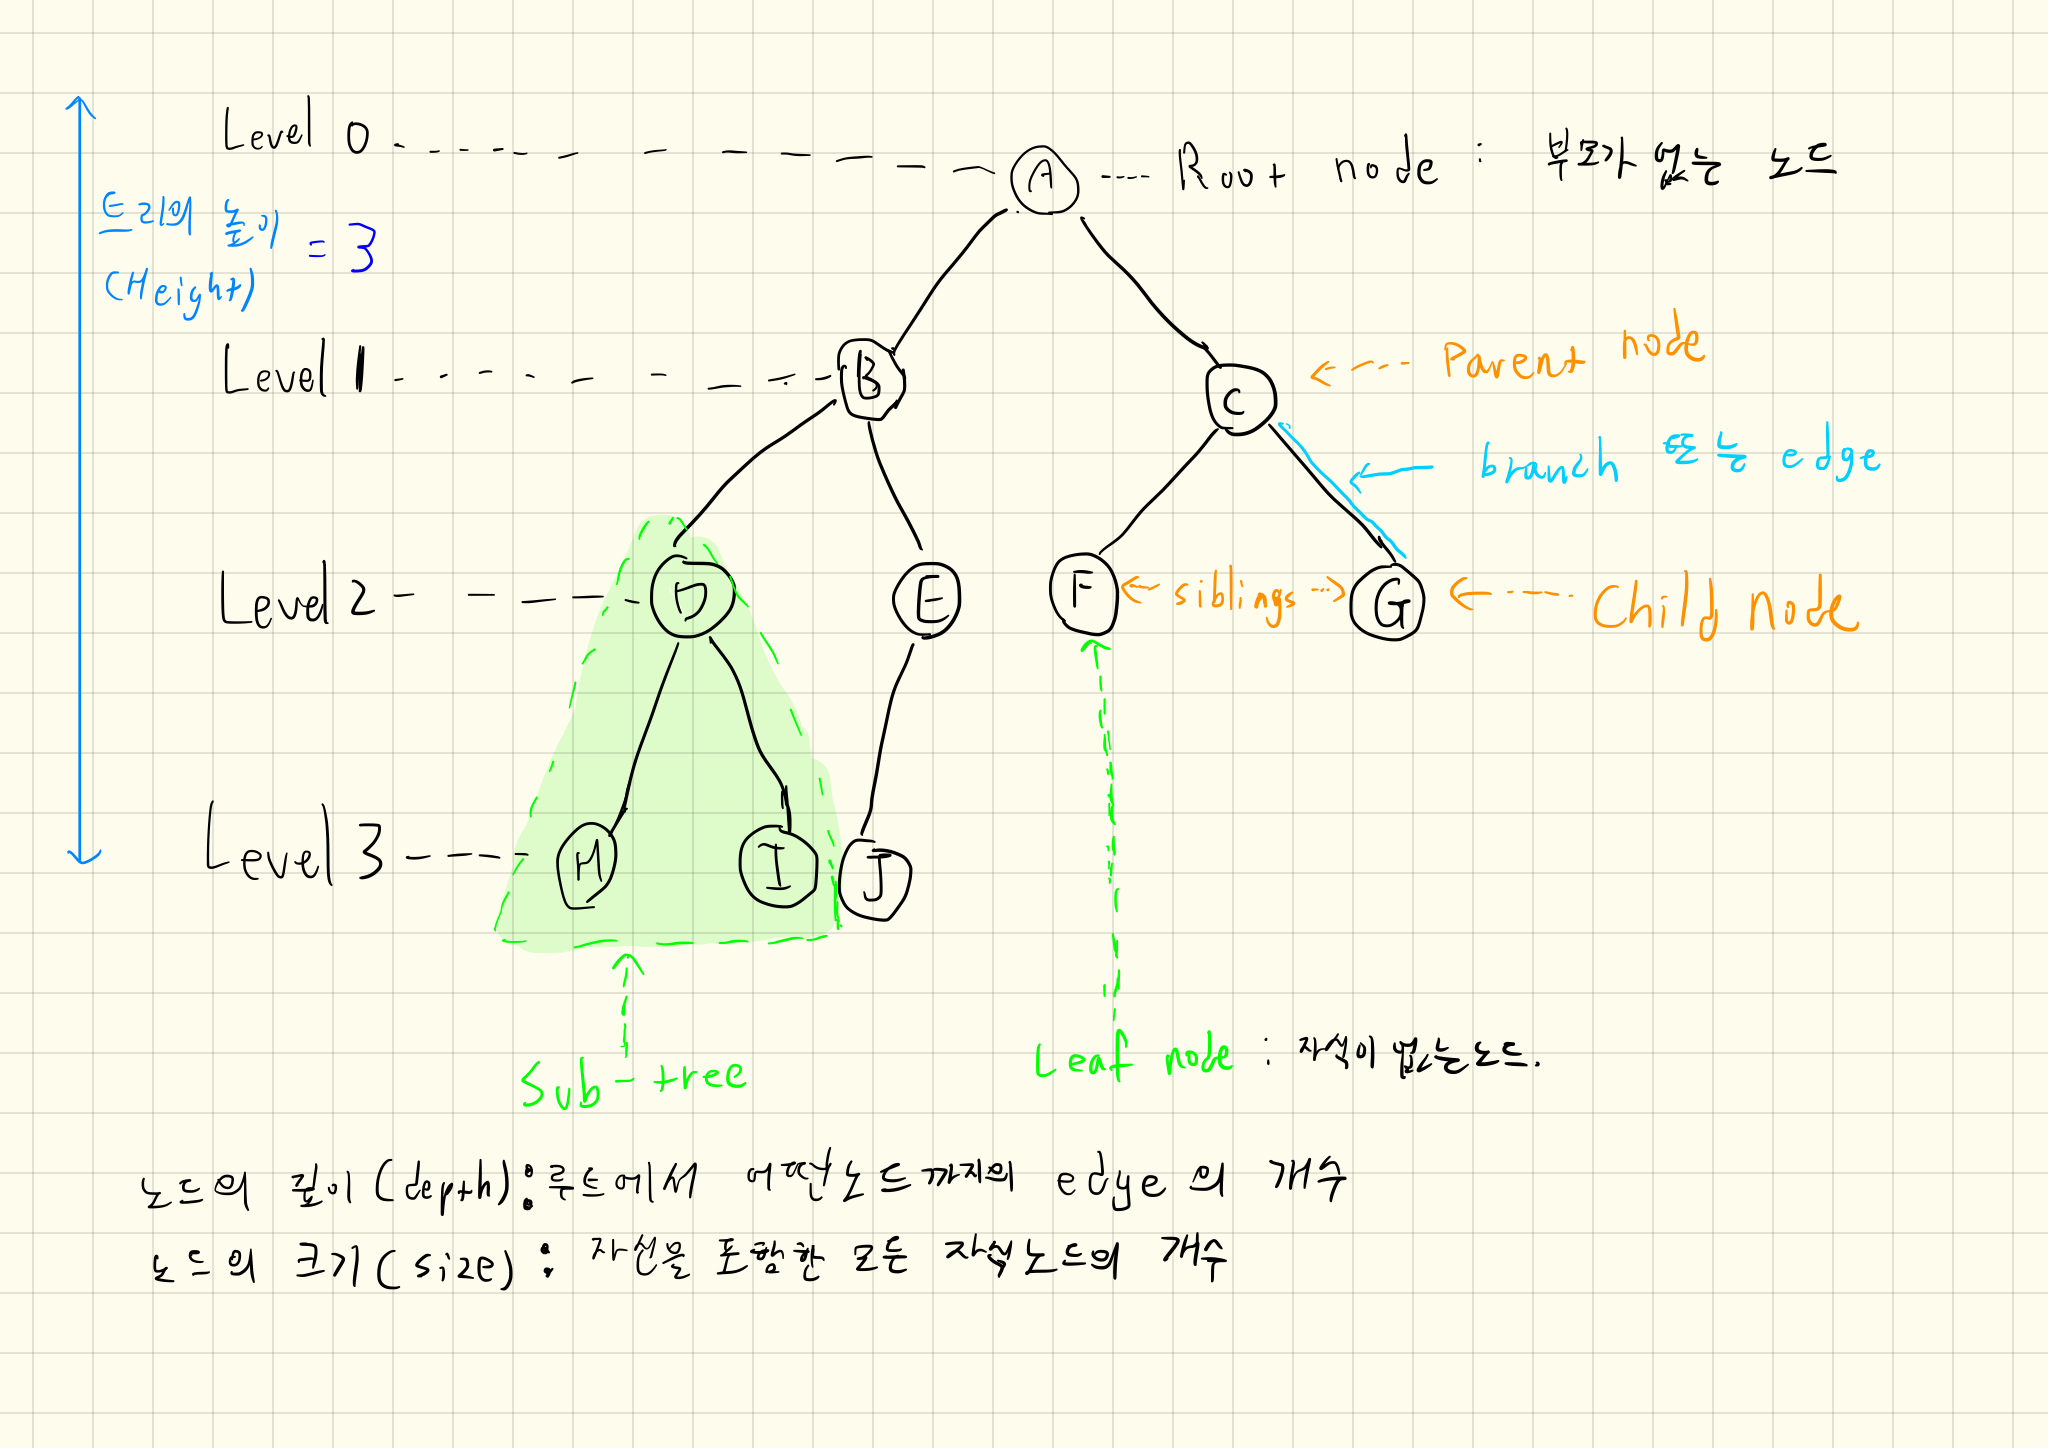 Level 0
A
Root node : 부모가 없는 노드
트리의 높이
(Height)
= 3
Level 1
B
C
Parent node
branch 또는 edge
Level 2
D
E
F
siblings
G
Child node
Level 3
H
I
J
Sub-tree
Leaf node : 자식이 없는노드.
노드의 깊이(depth):루트에서 어떤노드까지의 edge의 개수
노드의 크기(size): 자신을 포함한 모든 자식노드의 개수